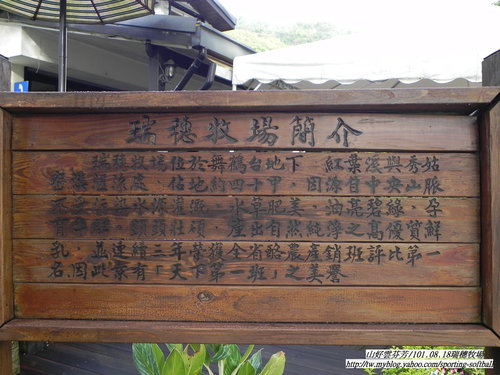 瑞穗牧場簡介
瑞穗牧場位於舞鶴台地下 紅葉溪與秀姑
巒溪匯流處 佔地約四十甲 因源自中央山脈
不受污染水源灌溉,水草肥美,油亮碧綠,孕
育牛隻,頭頭壯碩,產出自然純淨之高優質鮮
乳,並連續三年榮獲全省酪農產銷班評比第一
名,因此素有「天下第一班」之美譽
山好雲芬芳/101.08.18瑞穗牧場
http://tw.myblog.yahoo.com/sporting-softbal.